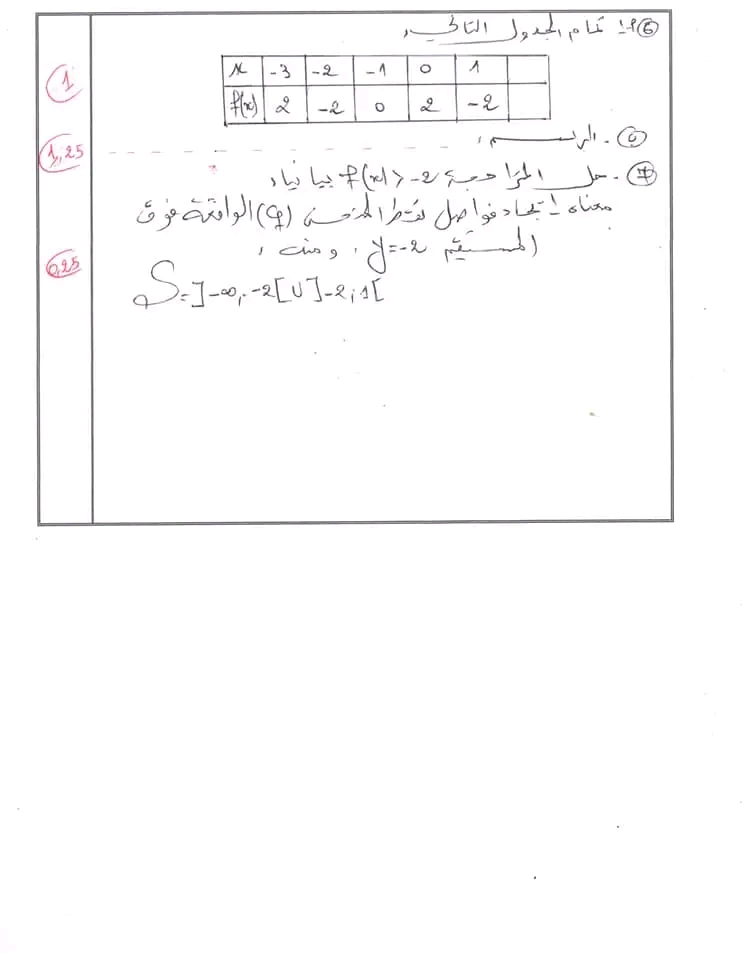 ⑤ إتمام الجدول التالي:
x | -3 | -2 | -1 | 0 | 1
f(x) | 2 | -2 | 0 | 2 | -2
1
⑥ - الرسم:
1,25
⑦ - حل المتراجحة f(x) > -2 بيانيا:
معناه إيجاد فواصل نقط المنحنى (Cf) الواقعة فوق
المستقيم y = -2 ، ومنه:
0,25
S = ]-∞; -2[ ∪ ]-2; 1[